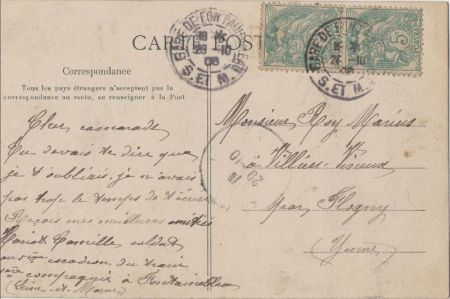 CARTE POST
GARE DE FONTAINEBLEAU
S. ET M.
GARE DE FONTAINEBLEAU
26 10
S. ET M.
5
Correspondance
Tous les pays étrangers n'acceptent pas la
correspondance au recto, se renseigner à la Post
Cher camarade
Tu devais te dire que
je t'oubliais, je n'avais
pas trop le temps de
Reçois mes meilleures amitiés
Camille soldat
au 5ème escadron du train
compagnie à Fontainebleau
(Seine-et-Marne)
Monsieur Roy Marius
à Villiers-Vineux
par Flogny
(Yonne)